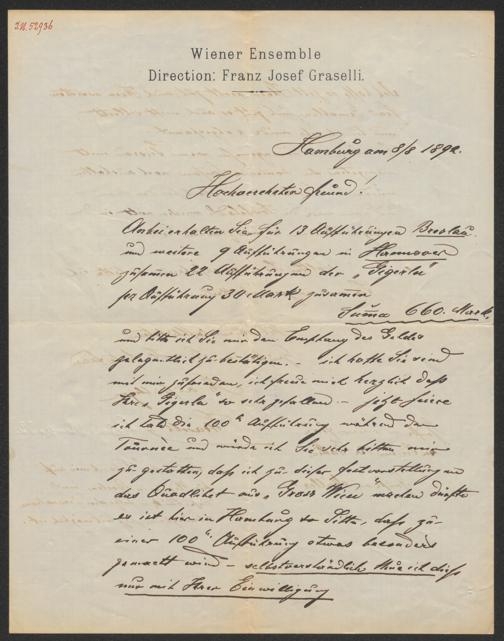 I.N. 52936
Wiener Ensemble
Direction: Franz Josef Graselli.
Hamburg am 8/8 1892.
Hochverehrter Freund!
Anbei erhalten Sie für 13 Aufführungen Breslau
und weitere 9 Aufführungen in Hannover
zusammen 22 Aufführungen der „Gigerln"
per Aufführung 30 Mark zusammen
Suma 660. Mark.
und bitte ich Sie mir den Empfang des Geldes
gelegentlich zu bestätigen. – ich hoffe Sie sind
mit mir zufrieden, ich freue mich herzlich daß
Ihre „Gigerln" so sehr gefallen – jetzt feiere
ich bald die 100te Aufführung während der
Tournée und würde ich Sie sehr bitten mir
zu gestatten, daß ich zu dieser Festvorstellung
das Quodlibet aus „Gross Wien" machen dürfte
es ist hier in Hamburg so Sitte, daß zu
einer 100ten Aufführung etwas besonders
gemacht wird – selbstverständlich thue ich dies
nur mit Ihrer Einwilligung